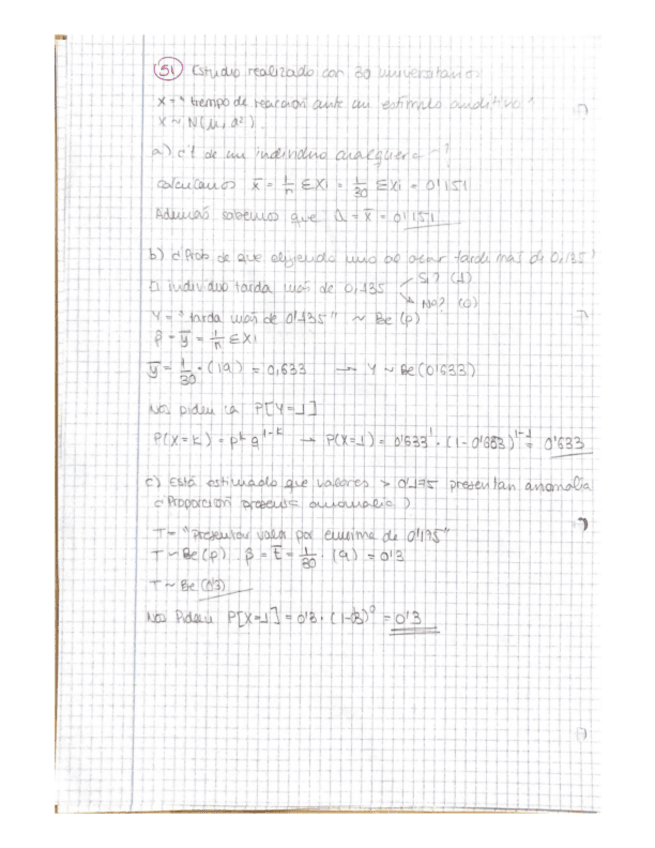 51 Estudio realizado con 30 universitarios
X = "tiempo de reacción ante un estímulo auditivo"
X ~ N(μ, σ²).
a) ¿t de un individuo cualquiera ~?
calculamos x̄ = 1/n ΣXi = 1/30 ΣXi = 0'151
Además sabemos que û = x̄ = 0'151
b) ¿Prob de que eligiendo uno al azar tarde más de 0,135?
El individuo tarda más de 0,135
Sí? (1)
No? (0)
Y = "tarda más de 0'135" ~ Be(p)
p̂ = ȳ = 1/n ΣXi
ȳ = 1/30 · (19) = 0,633 → Y ~ Be(0'633)
Nos piden la P[Y=1]
P(X=k) = p^k q^1-k → P(X=1) = 0'633^1 · (1-0'633)^1-1 = 0'633
c) Está estimado que valores > 0'175 presentan anomalía
¿Proporción presente anomalía?
T = "Presentar valor por encima de 0'175"
T ~ Be(p) p̂ = t̄ = 1/30 · (9) = 0'3
T ~ Be(0'3)
Nos Piden P[X=1] = 0'3 · (1-0'3)^0 = 0'3